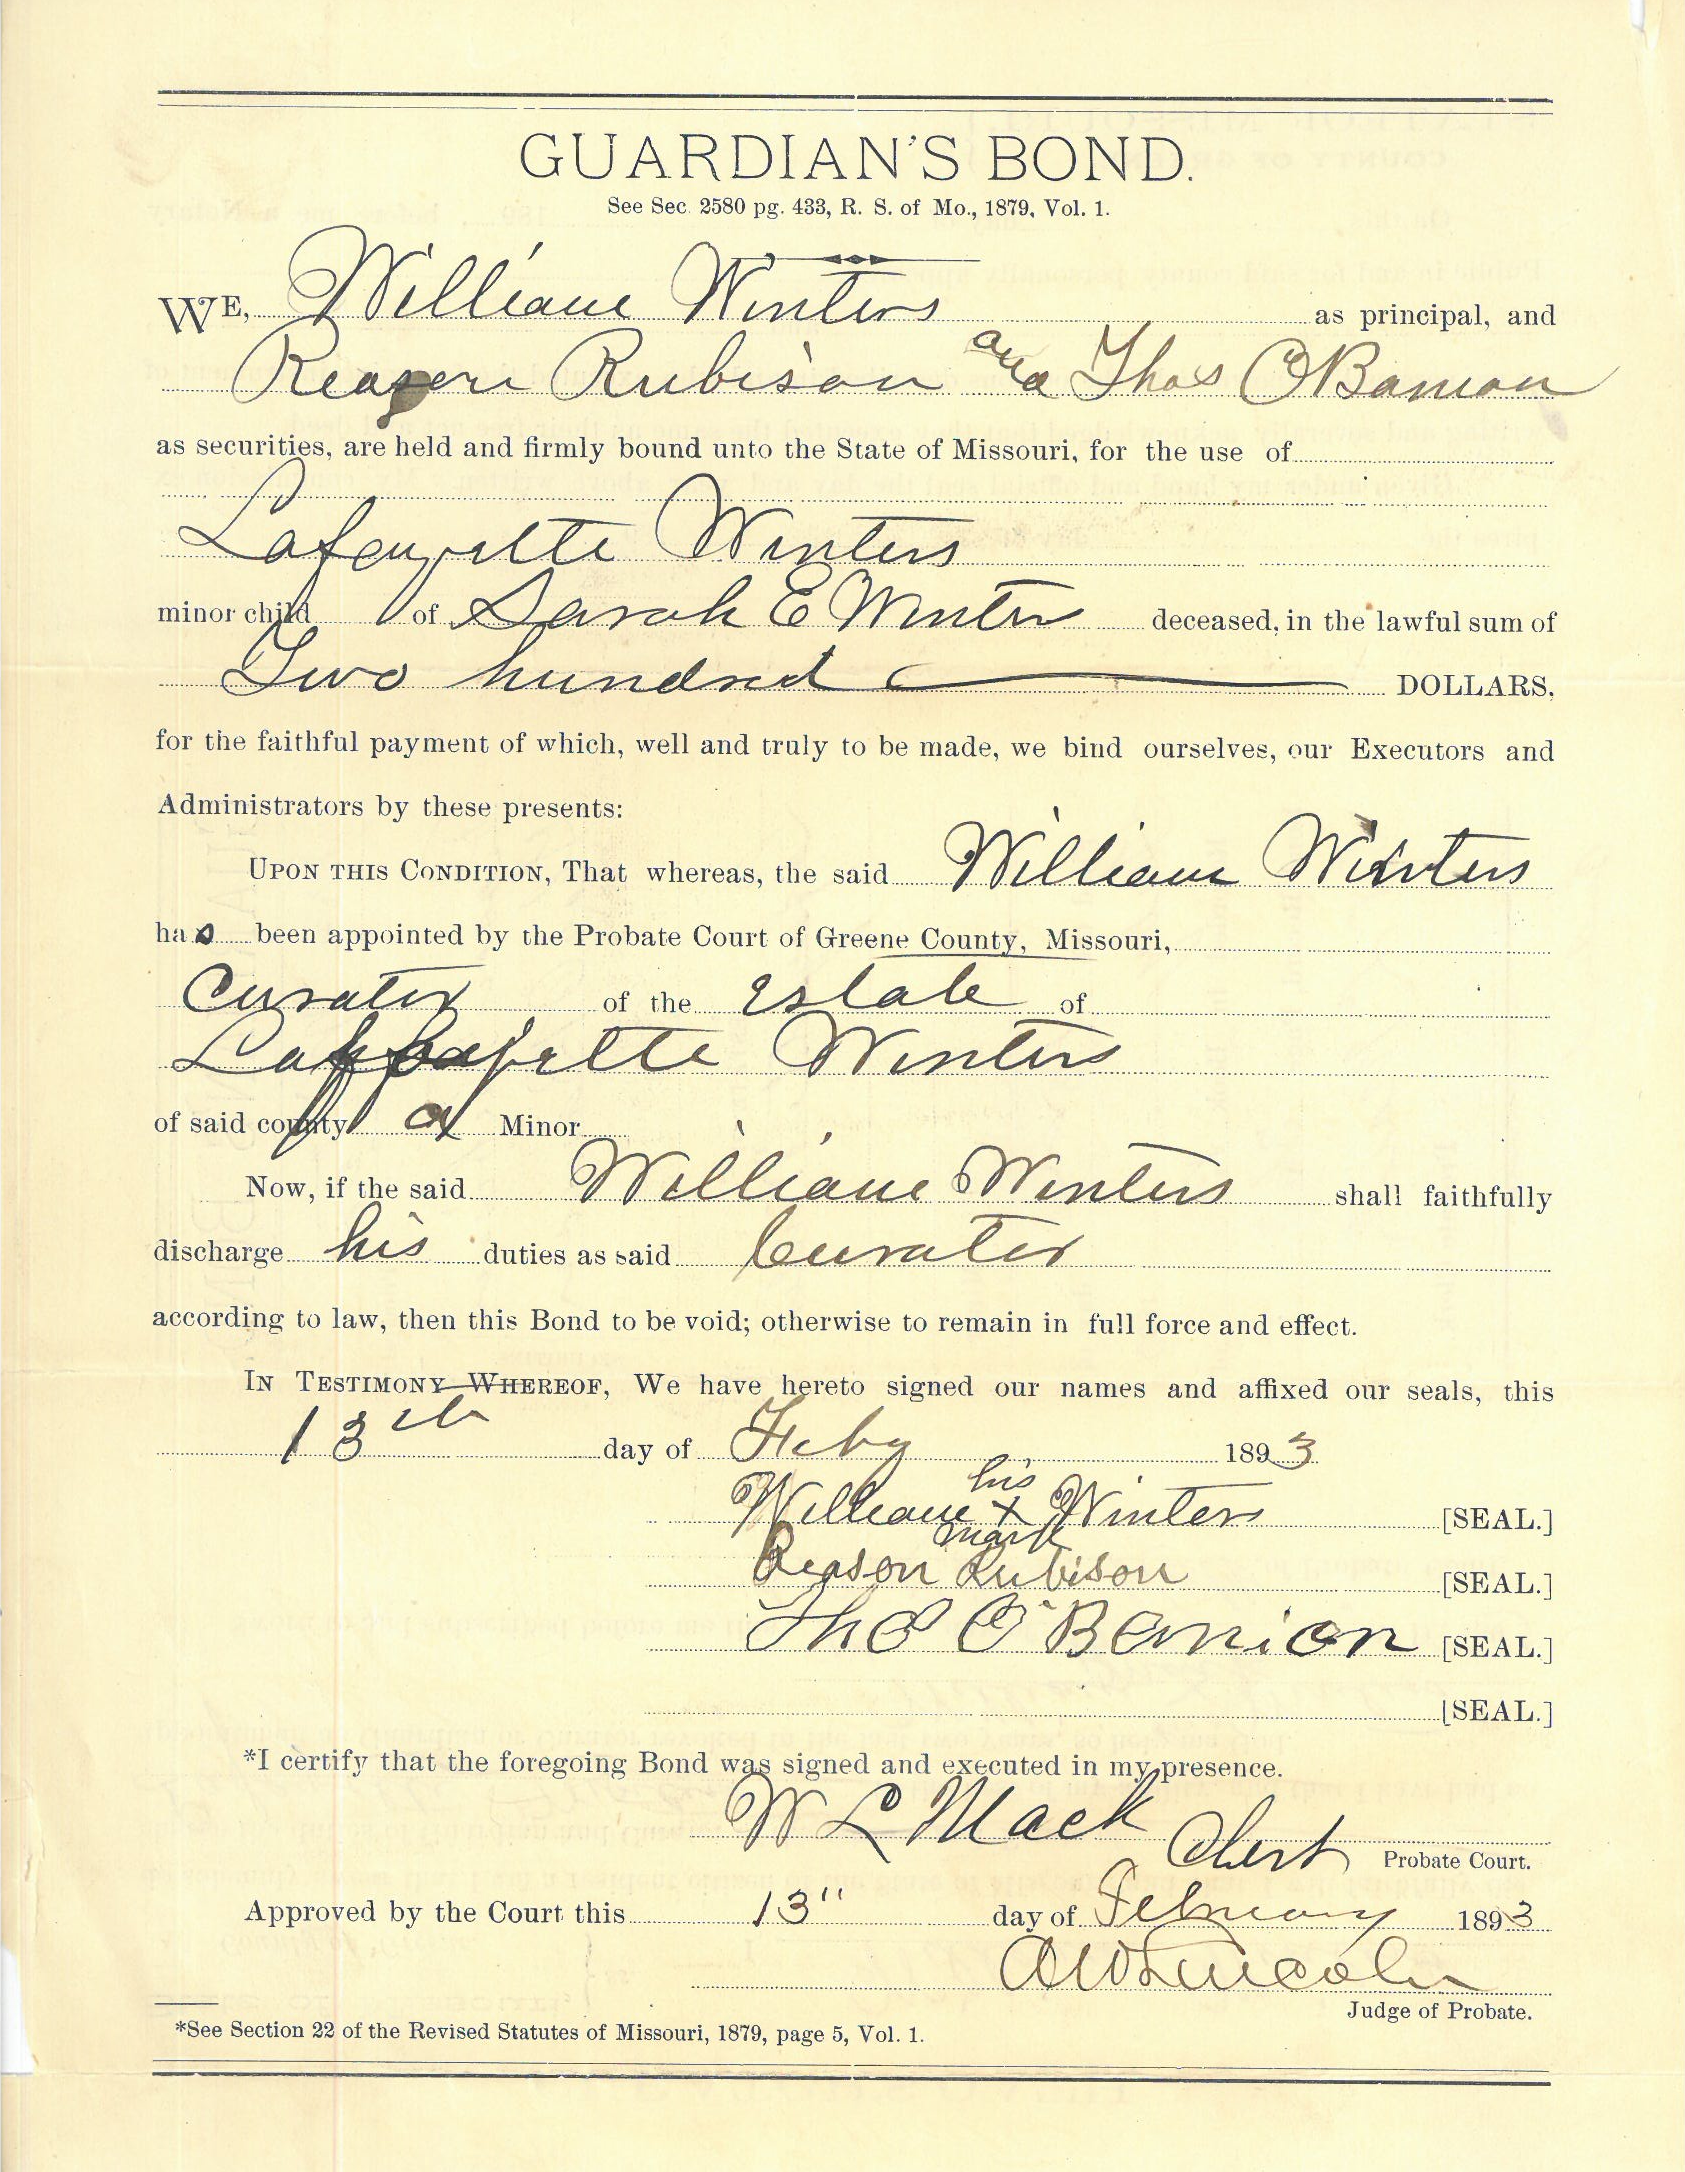 GUARDIAN'S BOND.
See Sec. 2580 pg. 433, R. S. of Mo., 1879, Vol. 1.
WE, William Winters as principal, and
Reason Rubison and Thos OBanion
as securities, are held and firmly bound unto the State of Missouri, for the use of
Lafayette Winters
minor child of Sarah E Winters deceased, in the lawful sum of
Two hundred DOLLARS,
for the faithful payment of which, well and truly to be made, we bind ourselves, our Executors and
Administrators by these presents:
UPON THIS CONDITION, That whereas, the said William Winters
has been appointed by the Probate Court of Greene County, Missouri,
Curator of the Estate of
Laffayette Winters
of said county a Minor
Now, if the said William Winters shall faithfully
discharge his duties as said Curator
according to law, then this Bond to be void; otherwise to remain in full force and effect.
IN TESTIMONY WHEREOF, We have hereto signed our names and affixed our seals, this
13th day of Feby 1893
his
William x Winters [SEAL.]
mark
Reason Rubison [SEAL.]
Tho8 O'Banion [SEAL.]
[SEAL.]
*I certify that the foregoing Bond was signed and executed in my presence.
W L Mack Clerk Probate Court.
Approved by the Court this 13" day of February 1893
A W Lincoln
Judge of Probate.
*See Section 22 of the Revised Statutes of Missouri, 1879, page 5, Vol. 1.